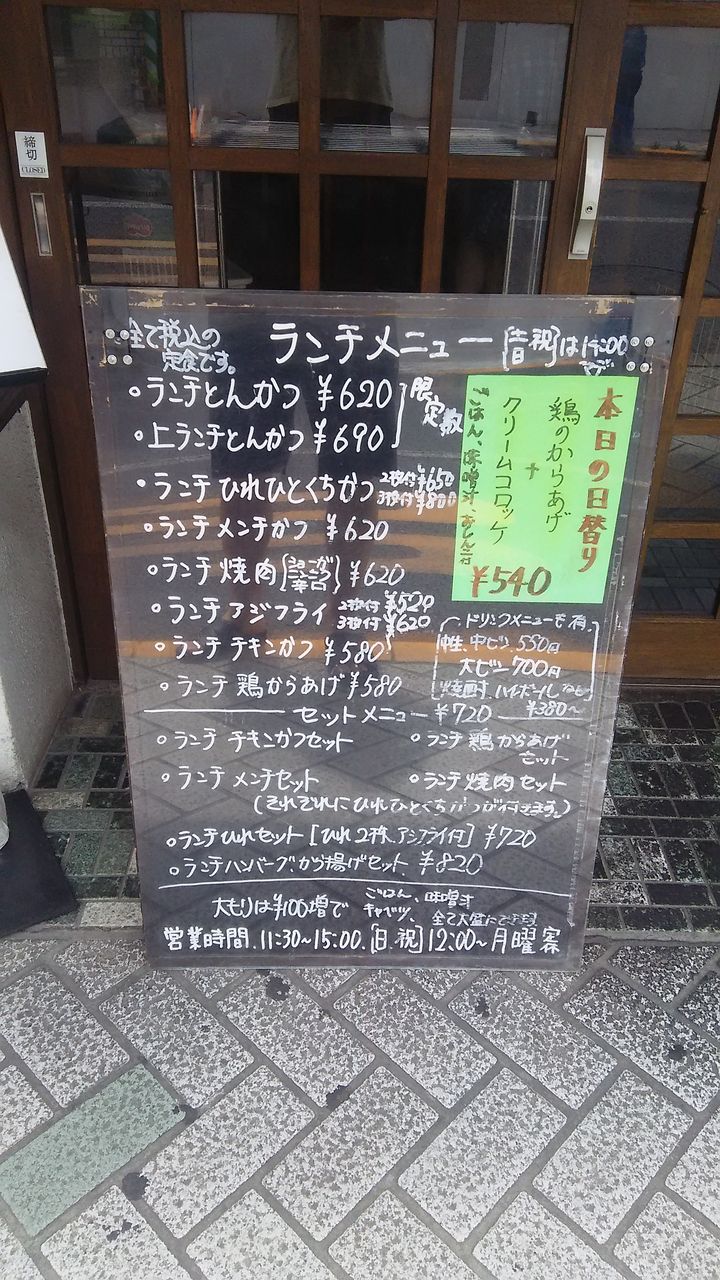 締切
CLOSED
全て税込の
定食です。
ランチメニュー
[土日祝]は15:00
まで
・ランチとんかつ ¥620
・上ランチとんかつ ¥690
限定数
・ランチひれひとくちかつ 2枚付¥650
3枚付¥800
・ランチメンチかつ ¥620
・ランチ焼肉[ ] ¥620
・ランチアジフライ 2枚付¥520
3枚付¥620
・ランチチキンかつ ¥580
・ランチ鶏からあげ ¥580
本日の日替り
鶏のからあげ
+
クリームコロッケ
ごはん、味噌汁、おしんこ付
¥540
ドリンクメニューも有
中ビン 550円
大ビン 700円
焼酎、ハイボールなど
¥380~
セットメニュー ¥720
・ランチチキンかつセット
・ランチ鶏からあげ
セット
・ランチメンチセット
・ランチ焼肉セット
(それぞれにひれひとくちかつが付きます。)
・ランチひれセット[ひれ2枚、アジフライ付] ¥720
・ランチハンバーグ、から揚げセット ¥820
大もりは¥100増で
ごはん、味噌汁
キャベツ、全て大盛にできます
営業時間 11:30~15:00. [日.祝]12:00~ 月曜